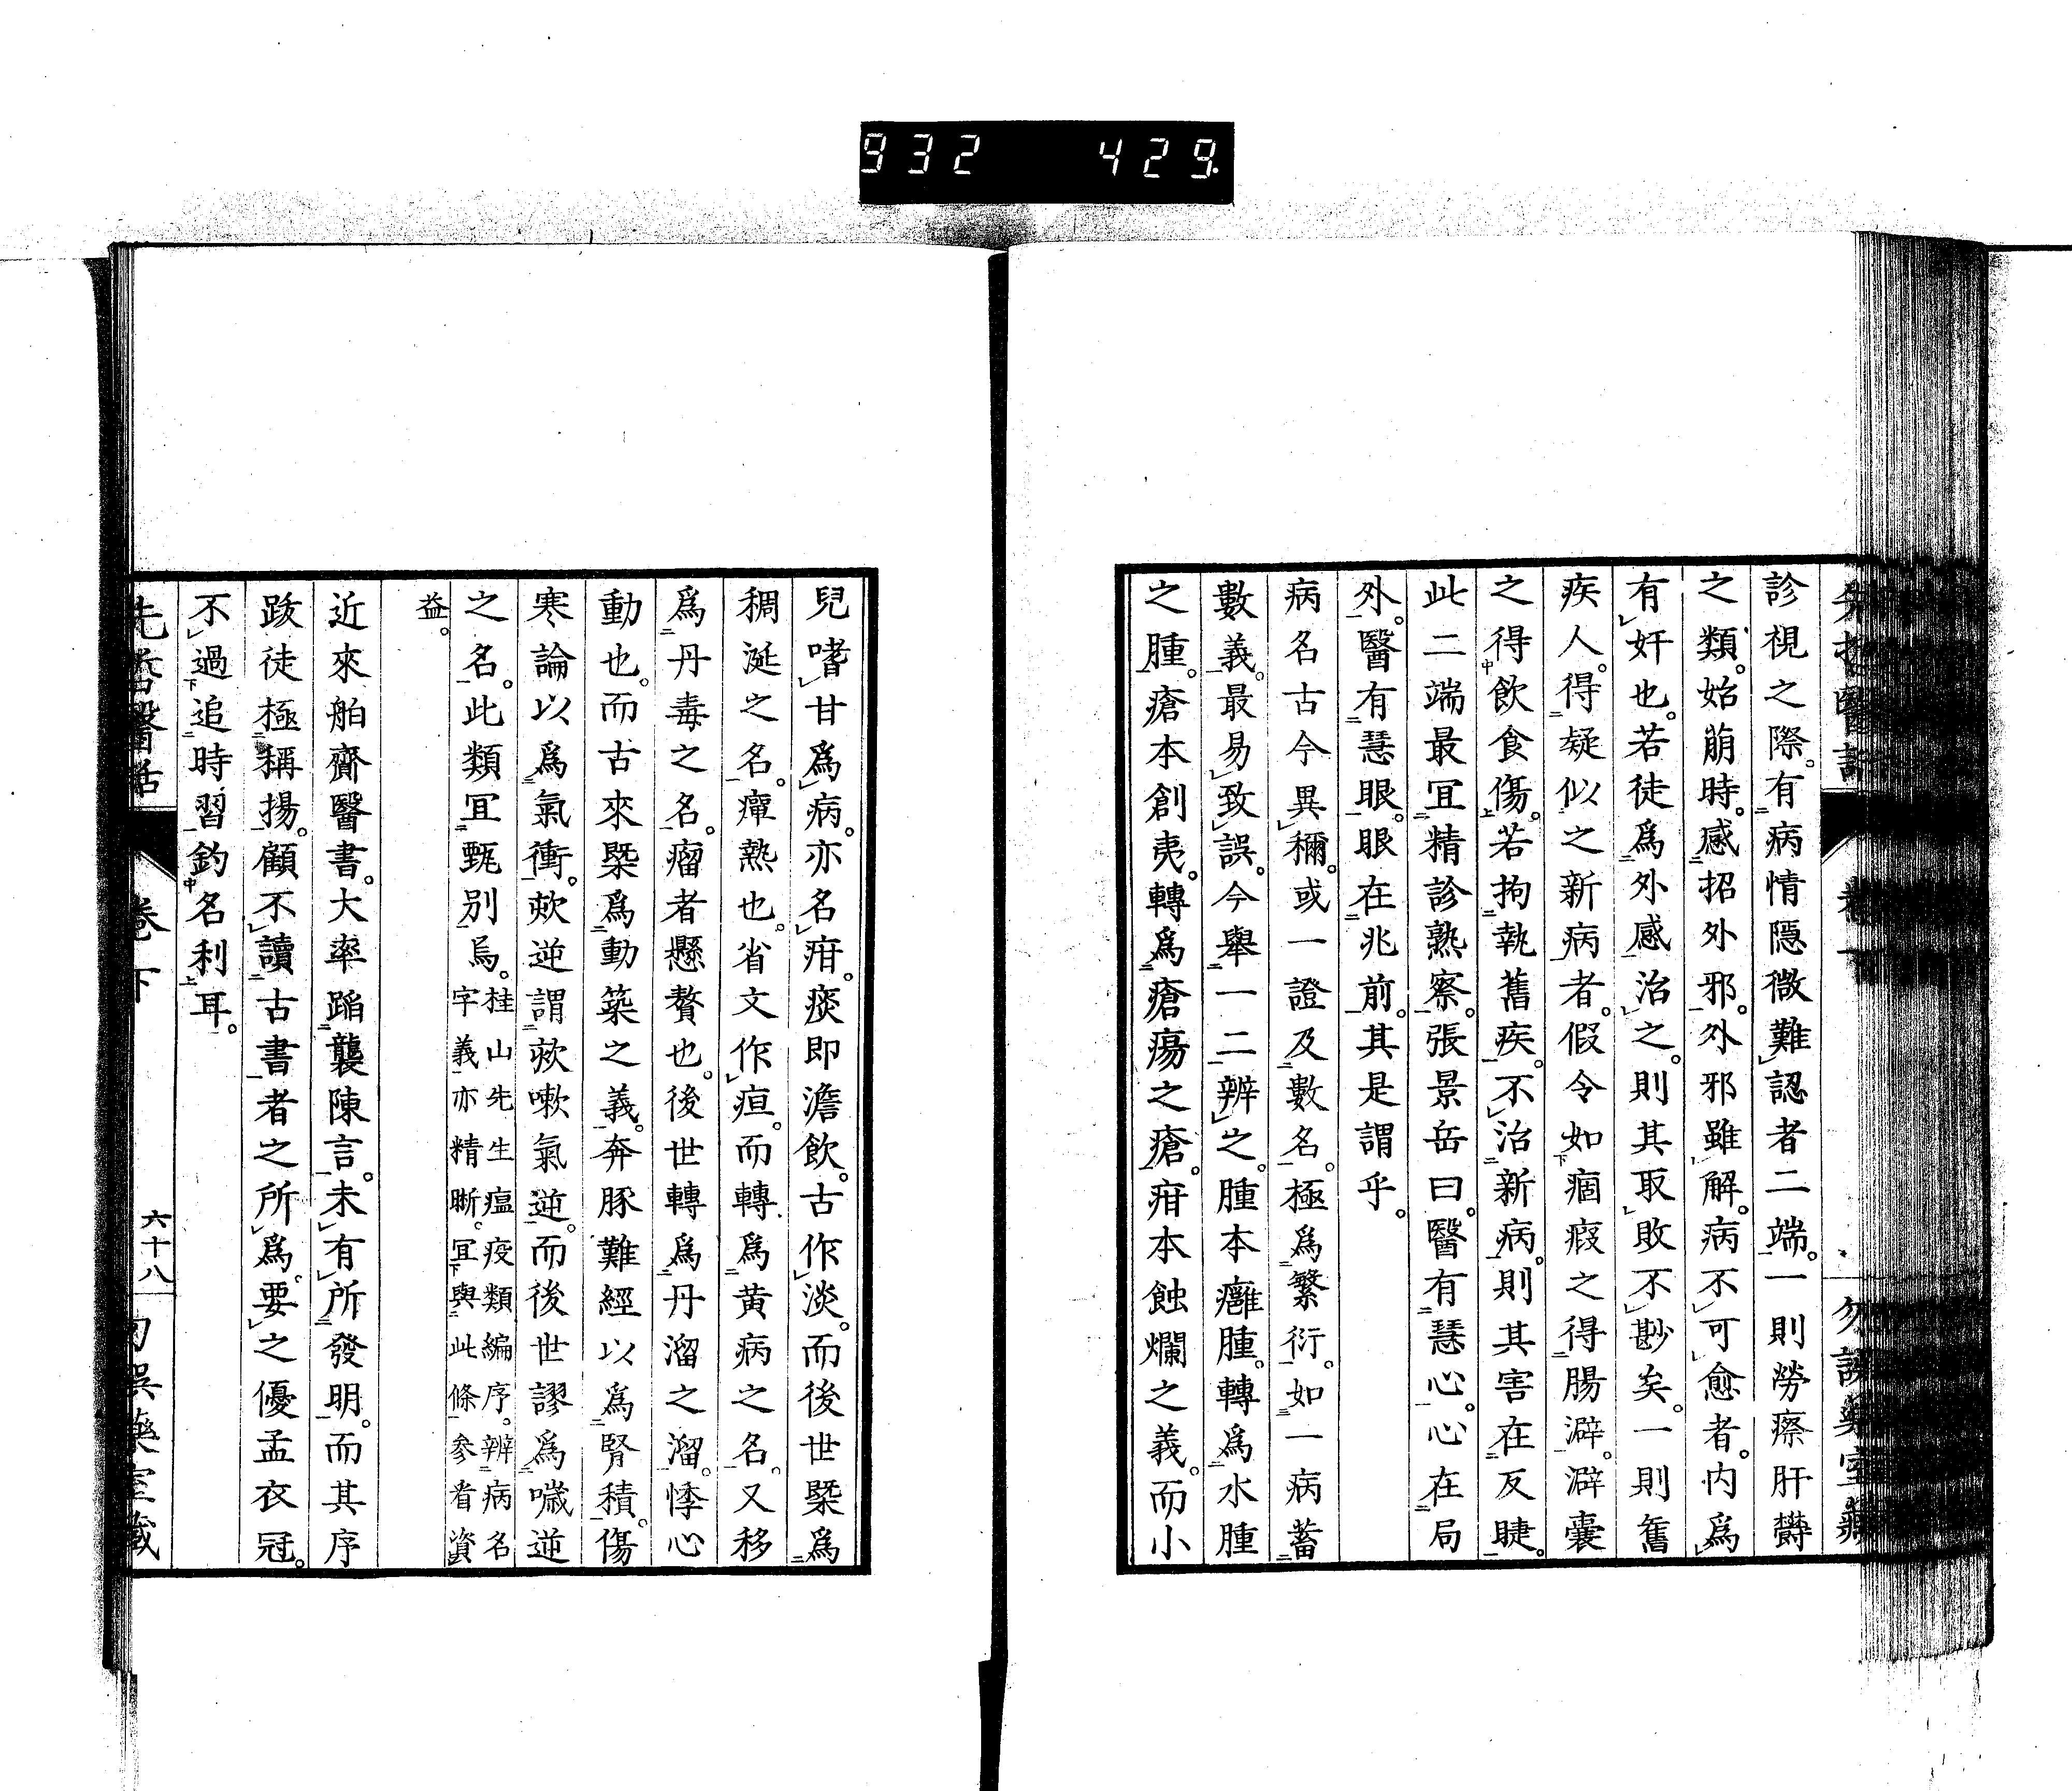 932 429
診視之際。有病情隱微難認者二端。一則勞瘵肝鬱
之類。始萠時。感招外邪。外邪雖解。病不可愈者。内為
有奸也。若徒為外感治之。則其取敗不尠矣。一則舊
疾人。得疑似之新病者。假令如痼瘕之得腸澼。澼囊
之得飲食傷。若拘執舊疾。不治新病。則其害在反睫。
此二端最宜精診熟察。張景岳曰。醫有慧心。心在局
外。醫有慧眼。眼在兆前。其是謂乎。
病名古今異稱。或一證及數名。極爲繁衍。如一病蓄
數義。最易致誤。今舉一二辨之。腫本癰腫。轉爲水腫
之腫。瘡本創夷。轉爲瘡瘍之瘡。疳本蝕爛之義。而小
兒嗜甘爲病。亦名疳。痰即澹飲。古作淡。而後世槩爲
稠涎之名。癉熱也。省文作疸。而轉爲黄病之名。又移
爲丹毒之名。瘤者懸贅也。後世轉爲丹溜之溜。悸心
動也。而古來槩爲動築之義。奔豚難經以爲腎積。傷
寒論以爲氣衝。欬逆謂欬嗽氣逆。而後世謬爲噦逆
之名。此類宜甄別焉。桂山先生瘟疫類編序。辨病名
字義亦精晰。宜與此條參看資
益。
近來舶齎醫書。大率蹈襲陳言。未有所發明。而其序
跋徒極稱揚。顧不讀古書者之所爲。要之優孟衣冠。
不過追時習釣名利耳。
先哲醫話
卷下
六十八
勿誤藥室藏